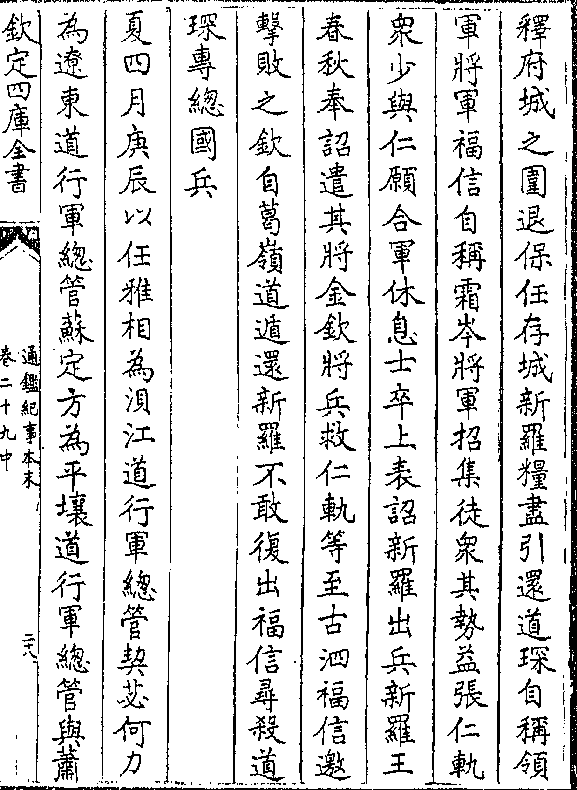 釋府城之圍退保任存城新羅糧盡引還道琛自稱領
軍將軍福信自稱霜岑將軍招集徒衆其勢益張仁軌
衆少與仁願合軍休息士卒上表詔新羅出兵新羅王
春秋奉詔遣其將金欽將兵救仁軌等至古泗福信邀
擊敗之欽自葛嶺道遁還新羅不敢復出福信尋殺道
琛專總國兵
夏四月庚辰以任雅相為浿江道行軍總管契苾何力
為遼東道行軍總管蘇定方為平壤道行軍總管與蕭
欽定四庫全書
通鑑紀事本末
卷二十九中
二六